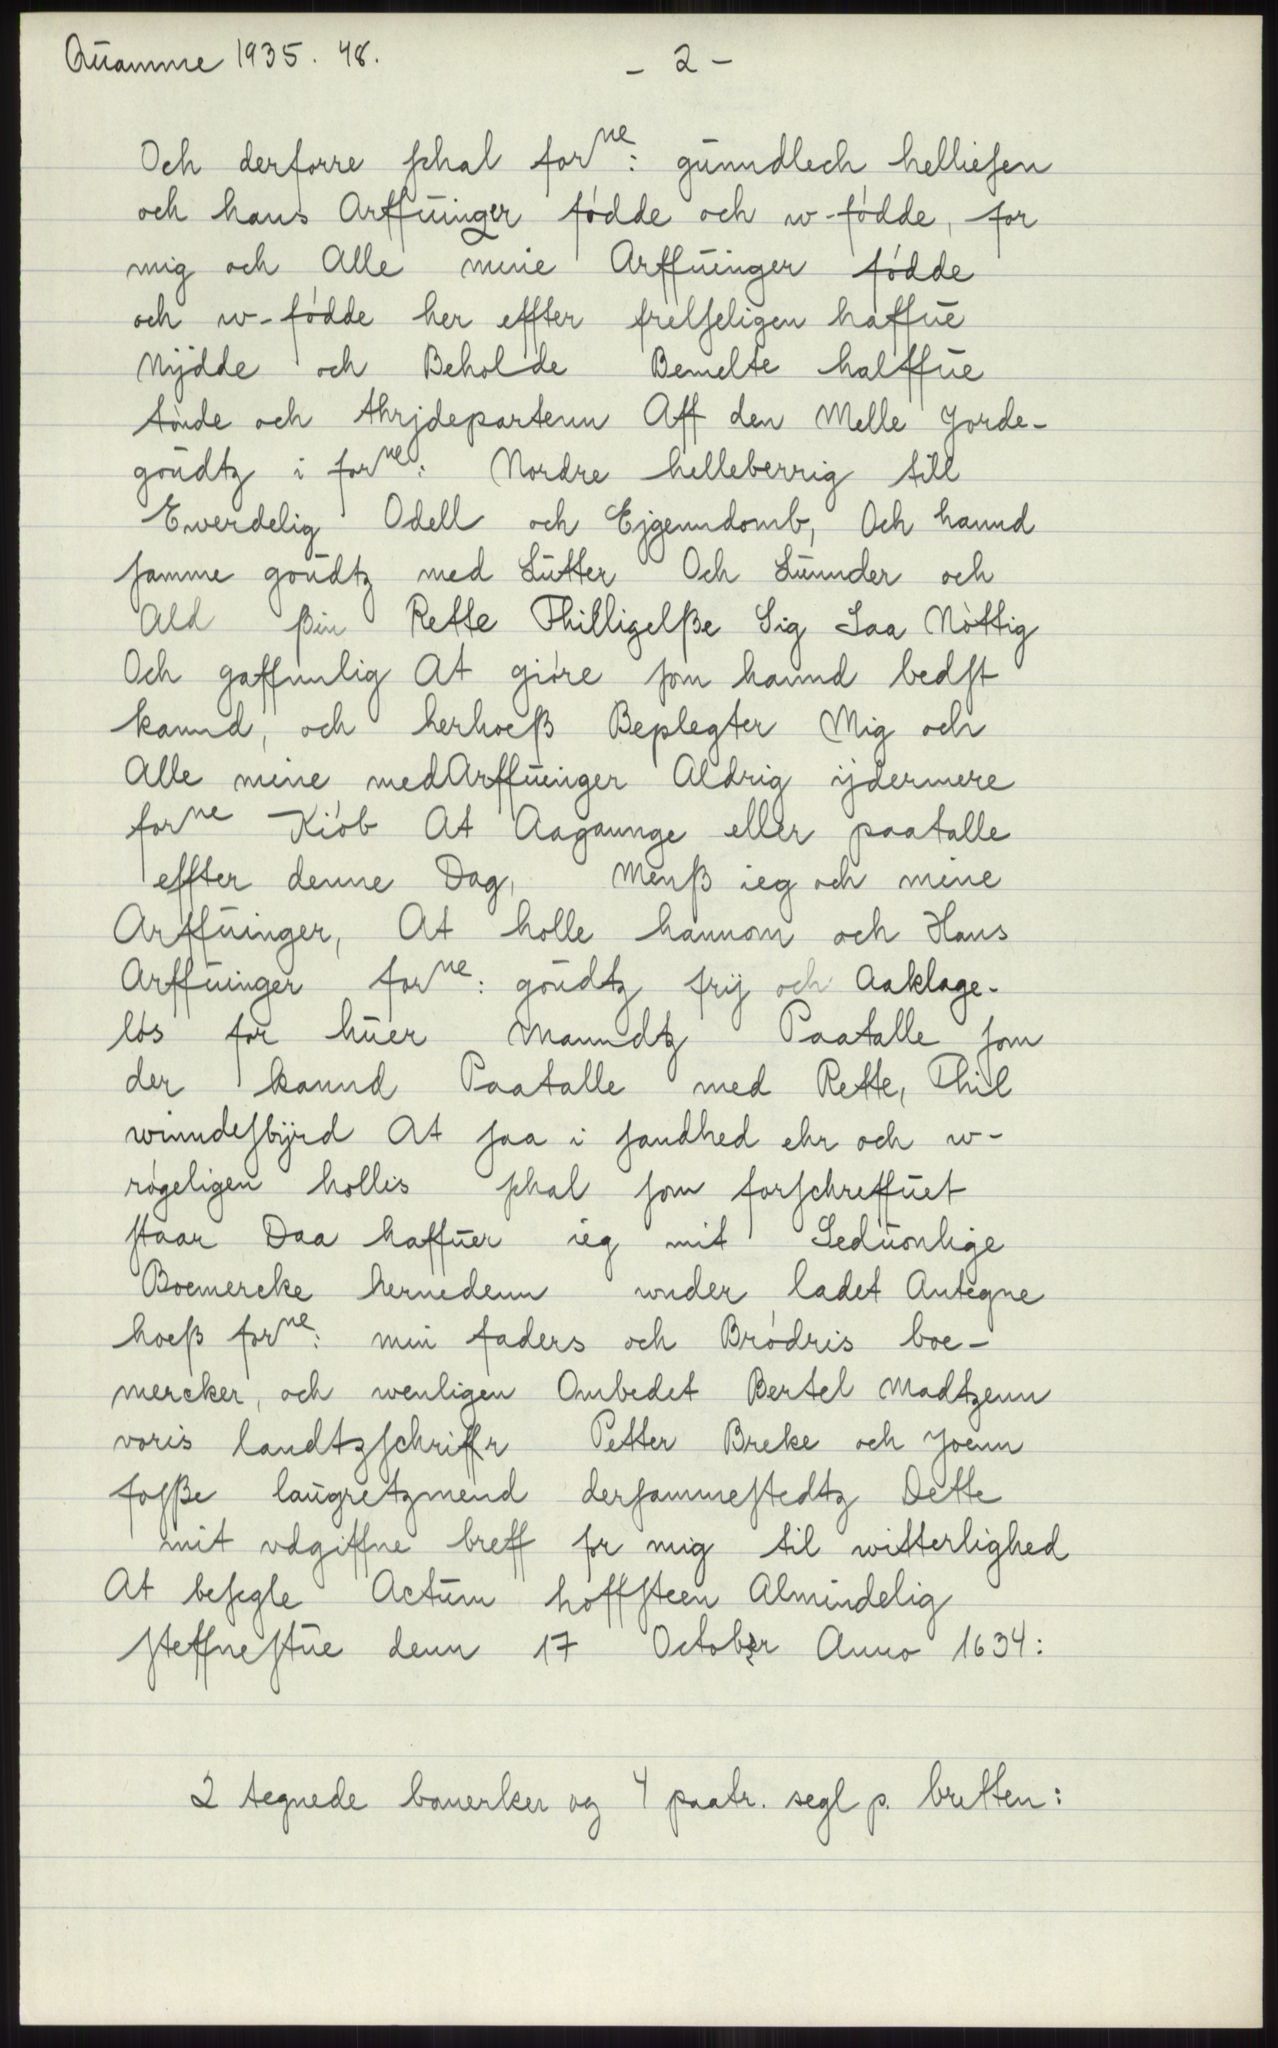 Quamme 1935. 48.
- 2 -
Och derforre schal for ne: gunndlech helliesen
och hans Arffuinger fødde och w-fødde, for
mig och Alle mine Arffuinger fødde
och w-fødde her effter frelseligen haffue
Nydde och Beholde Bemelte halffue
tønde och thrjdepartenn Aff den Melle Jorde-
goudtz i for ne: Nordre helleberrig till
Ewerdelig Odell och Ejgenndomb, Och hannd
samme goudtz med Lutter Och Lunnder och
Ald ßin Rette Thilligelße Sig Saa Nøttig
Och gaffnnlig At giøre som hannd bedst
kannd, och herhoeß Beplegter Mig och
Alle mine medArffuinger Aldrig ijdermere
for ne Kiøb At Aagannge eller paatalle
effter denne Dag, Menß ieg och mine
Arffuinger, At holle hannom och Hans
Arffuinger for ne: goudtz frij och Aaklage-
løs for huer Manndtz Paatalle som
der kannd Paatalle med Rette, Thil
winndesbyrd At saa i sandhed ehr och w-
røgeligen hollis schal som forschreffuet
staar Daa haffuer ieg mit Seduonlige
Boemercke hernedenn under ladet Antegne
hoeß for ne: min faders och Brødris boe-
mercker, och wenligen Ombedet Bertel Madtzenn
voris landtzschriffr Petter Breke och Joenn
foßße laugretzmend dersammestedtz Dette
mit vdgiffne breff for mig til witterlighed
At besegle Actum hoffsteen Almindelig
steffnestue denn 17 October Anno 1634:
2 tegnede bomerker og 4 paatr. segl p. bretten: